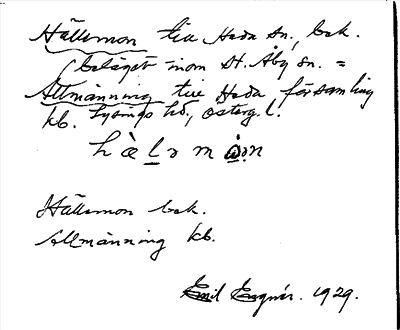 Hällemon till Heda sn., bek.
(beläget inom St. Åby sn. =
Allmänning till Heda församling
kb. Lysings hd, Österg. l.
Hällemon bek.
Allmänning kb.
Emil 1929.